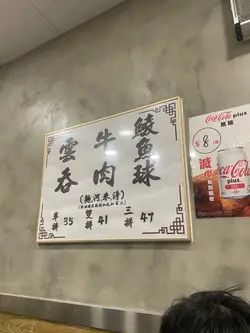 鯪魚球
牛肉
雲吞
(麵河米滑)
單拼 35 雙拼 41 三拼 47
Coca-Cola
plus
8
減少
Coca-Cola
plus